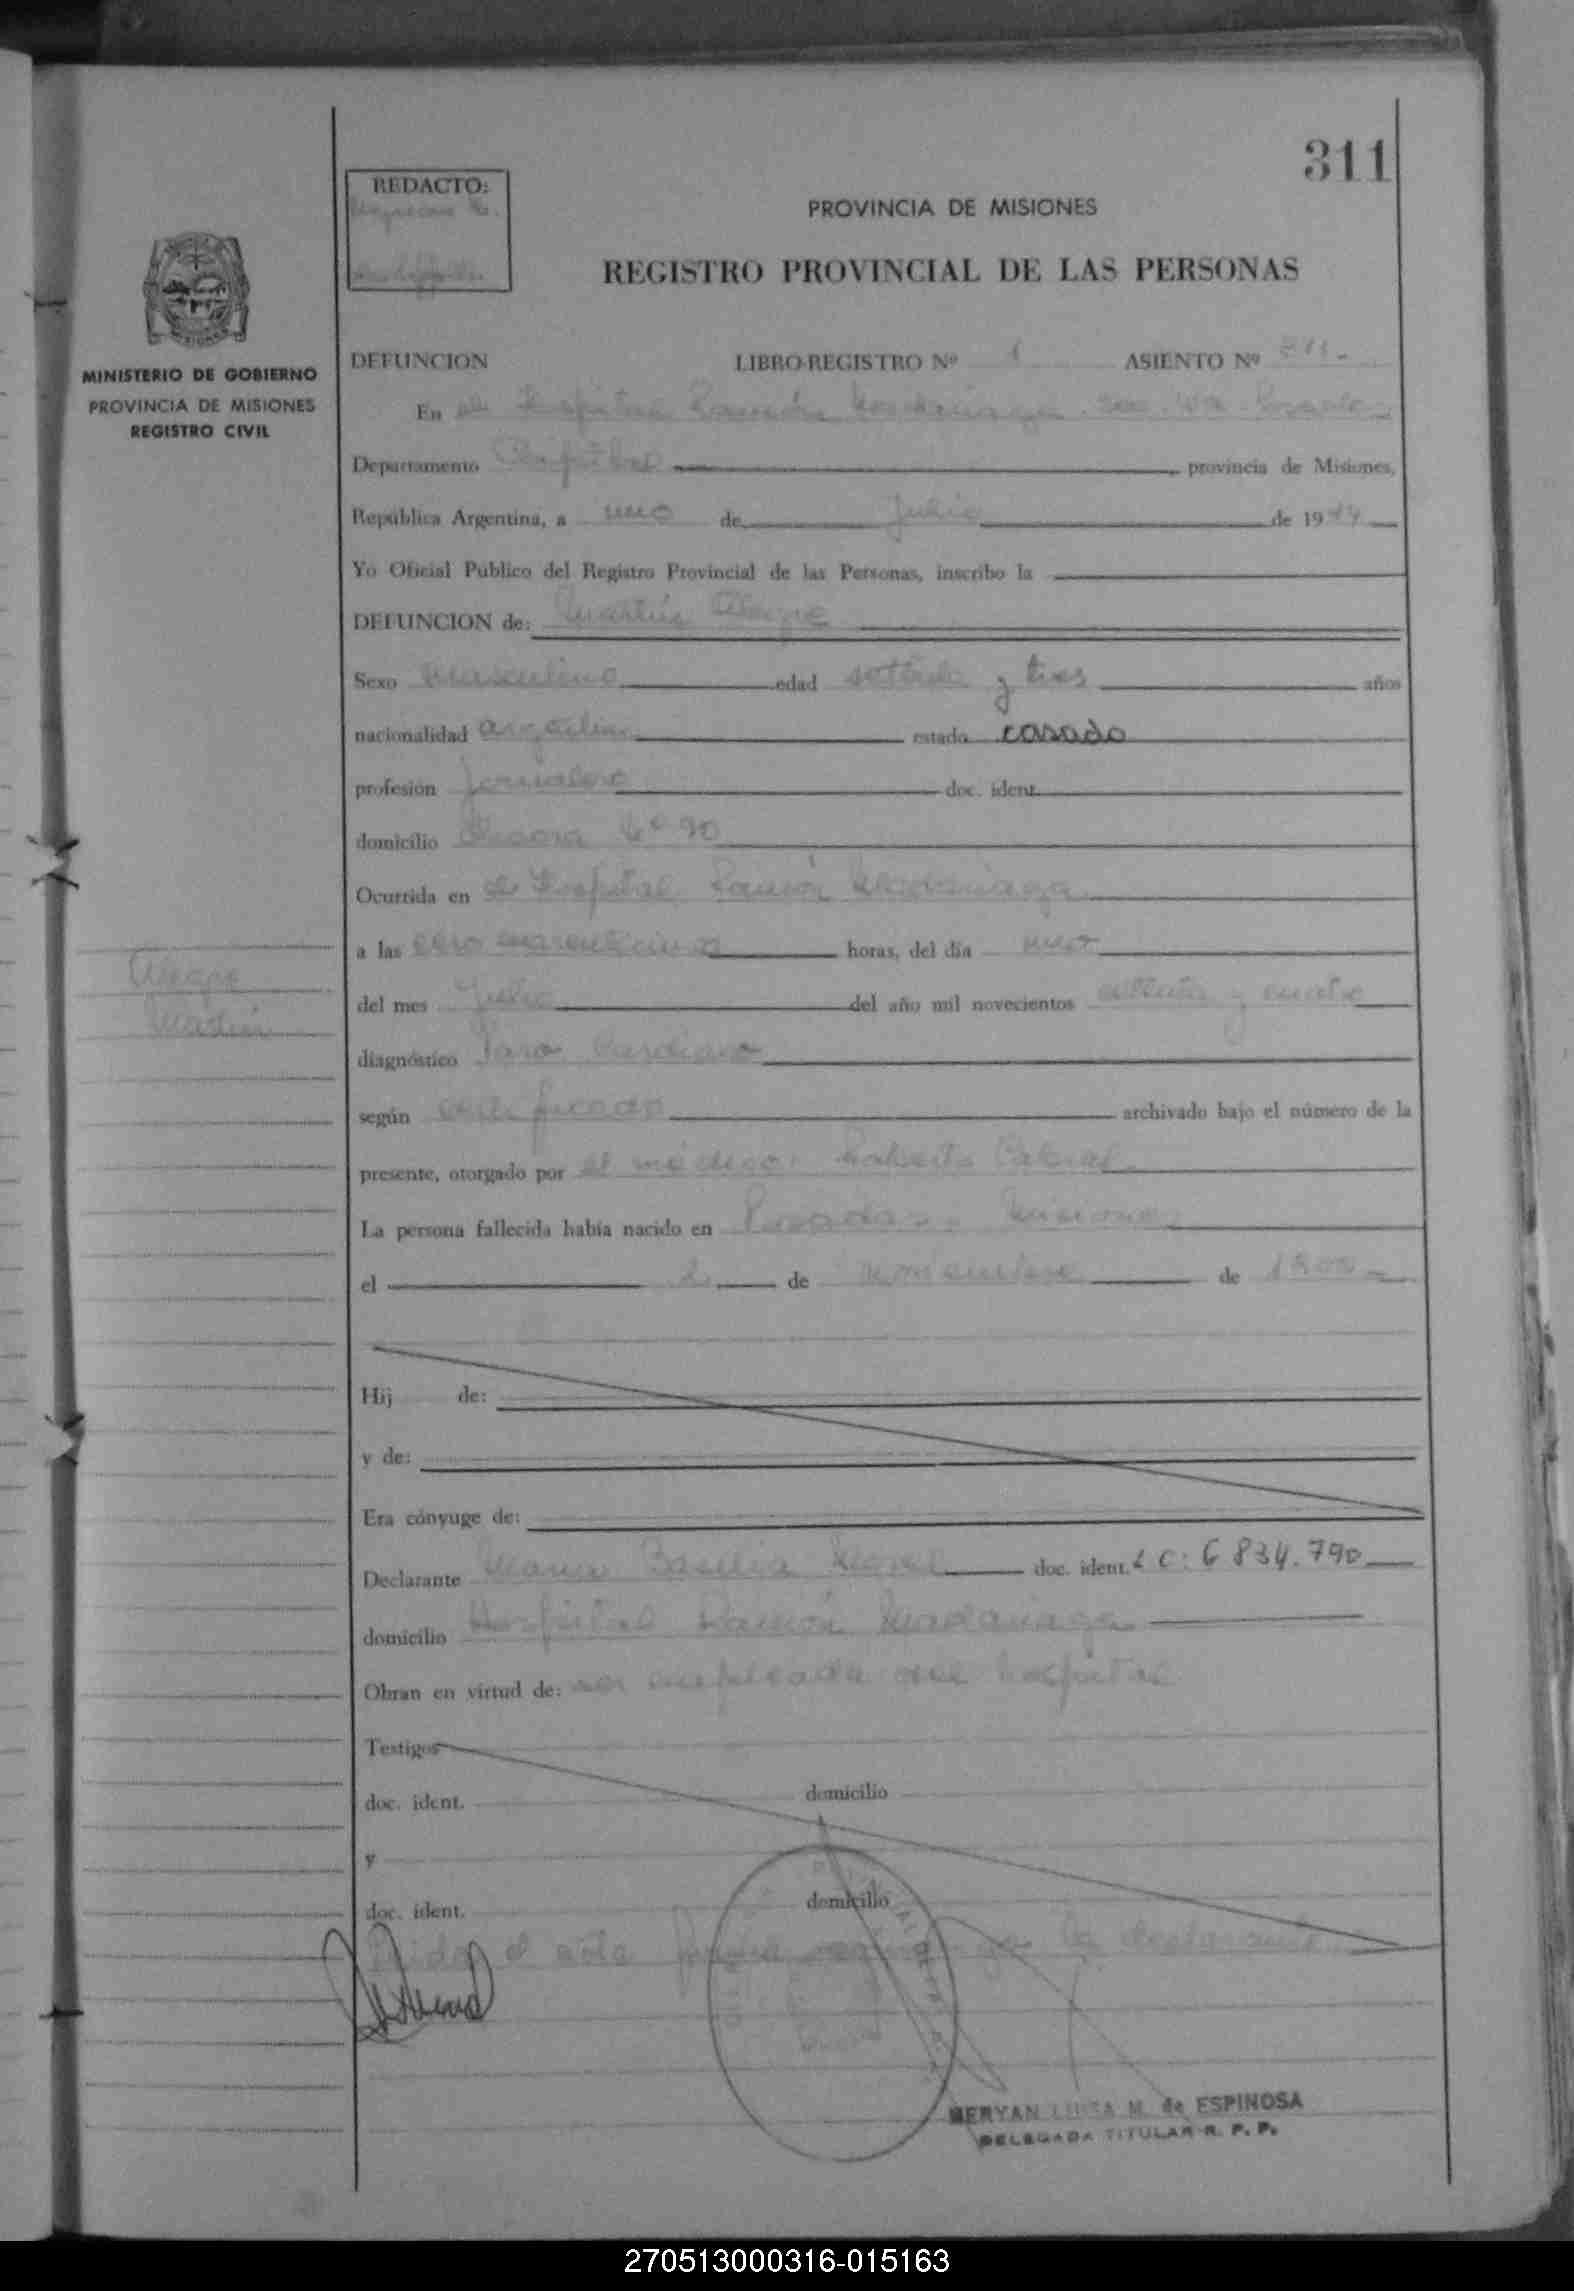 311
REDACTO:
PROVINCIA DE MISIONES
REGISTRO PROVINCIAL DE LAS PERSONAS
MINISTERIO DE GOBIERNO
PROVINCIA DE MISIONES
REGISTRO CIVIL
DEFUNCION LIBRO-REGISTRO Nº 1 ASIENTO Nº 311.-
En el Hospital Ramón Madariaga
Departamento Capital provincia de Misiones,
República Argentina, a uno de Julio de 19
Yo Oficial Público del Registro Provincial de las Personas, inscribo la
DEFUNCION de: Martín Alegre
Sexo masculino edad setenta y tres años
nacionalidad argentina estado casado
profesión Jornalero doc. ident.
domicilio 90
Ocurrida en el Hospital Ramón Madariaga
a las cero horas, del día uno
Alegre
Martín
del mes Julio del año mil novecientos y cuatro
diagnóstico Paro Cardiaco
según certificado archivado bajo el número de la
presente, otorgado por el médico: Cabral
La persona fallecida había nacido en Posadas - Misiones
el 2 de noviembre de
Hij de:
y de:
Era cónyuge de:
Declarante Maria Basilia doc. ident. L C: 6 834.790
domicilio Hospital Ramón Madariaga
Obran en virtud de: ser empleada del hospital
Testigos
doc. ident. domicilio
y
doc. ident. domicilio
Leida el acta la declarante
MERYAN LUISA M. de ESPINOSA
DELEGADA TITULAR R. P. P.
270513000316-015163